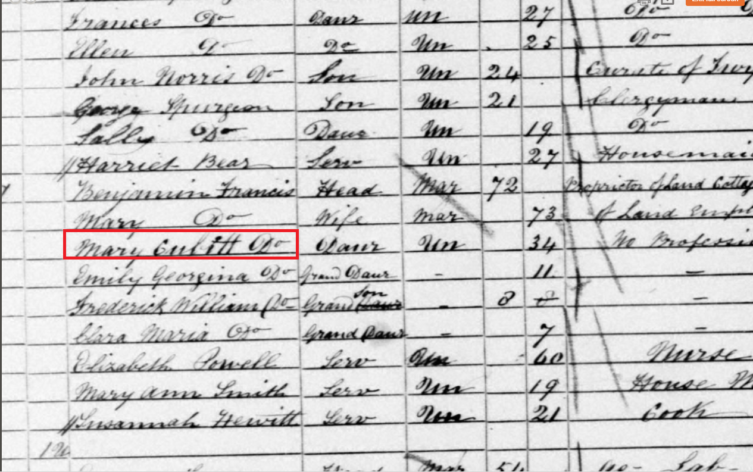 Frances Do Daur Un 27 Do
Ellen Do Do Un 25 Do
John Norris Do Son Un 24 Curate of
George Spurgeon Son Un 21 Clergyman
Sally Do Daur Un 19 Do
Harriet Bear Serv Un 27 Housemai
Benjamin Francis Head Mar 72 Proprietor of Land
Mary Do Wife Mar 73 of Land
Mary Cubitt Do Daur Un 34 No Professi
Emily Georgina Do Grand Daur - 11 -
Frederick William Do Grand son Daur - 8 8 -
Clara Maria Do Grand Daur - 7 -
Elizabeth Powell Serv Un 60 Nurse
Mary Ann Smith Serv Un 19 House M
Susannah Hewitt Serv Un 21 Cook
Mar 51 Ag- Lab-